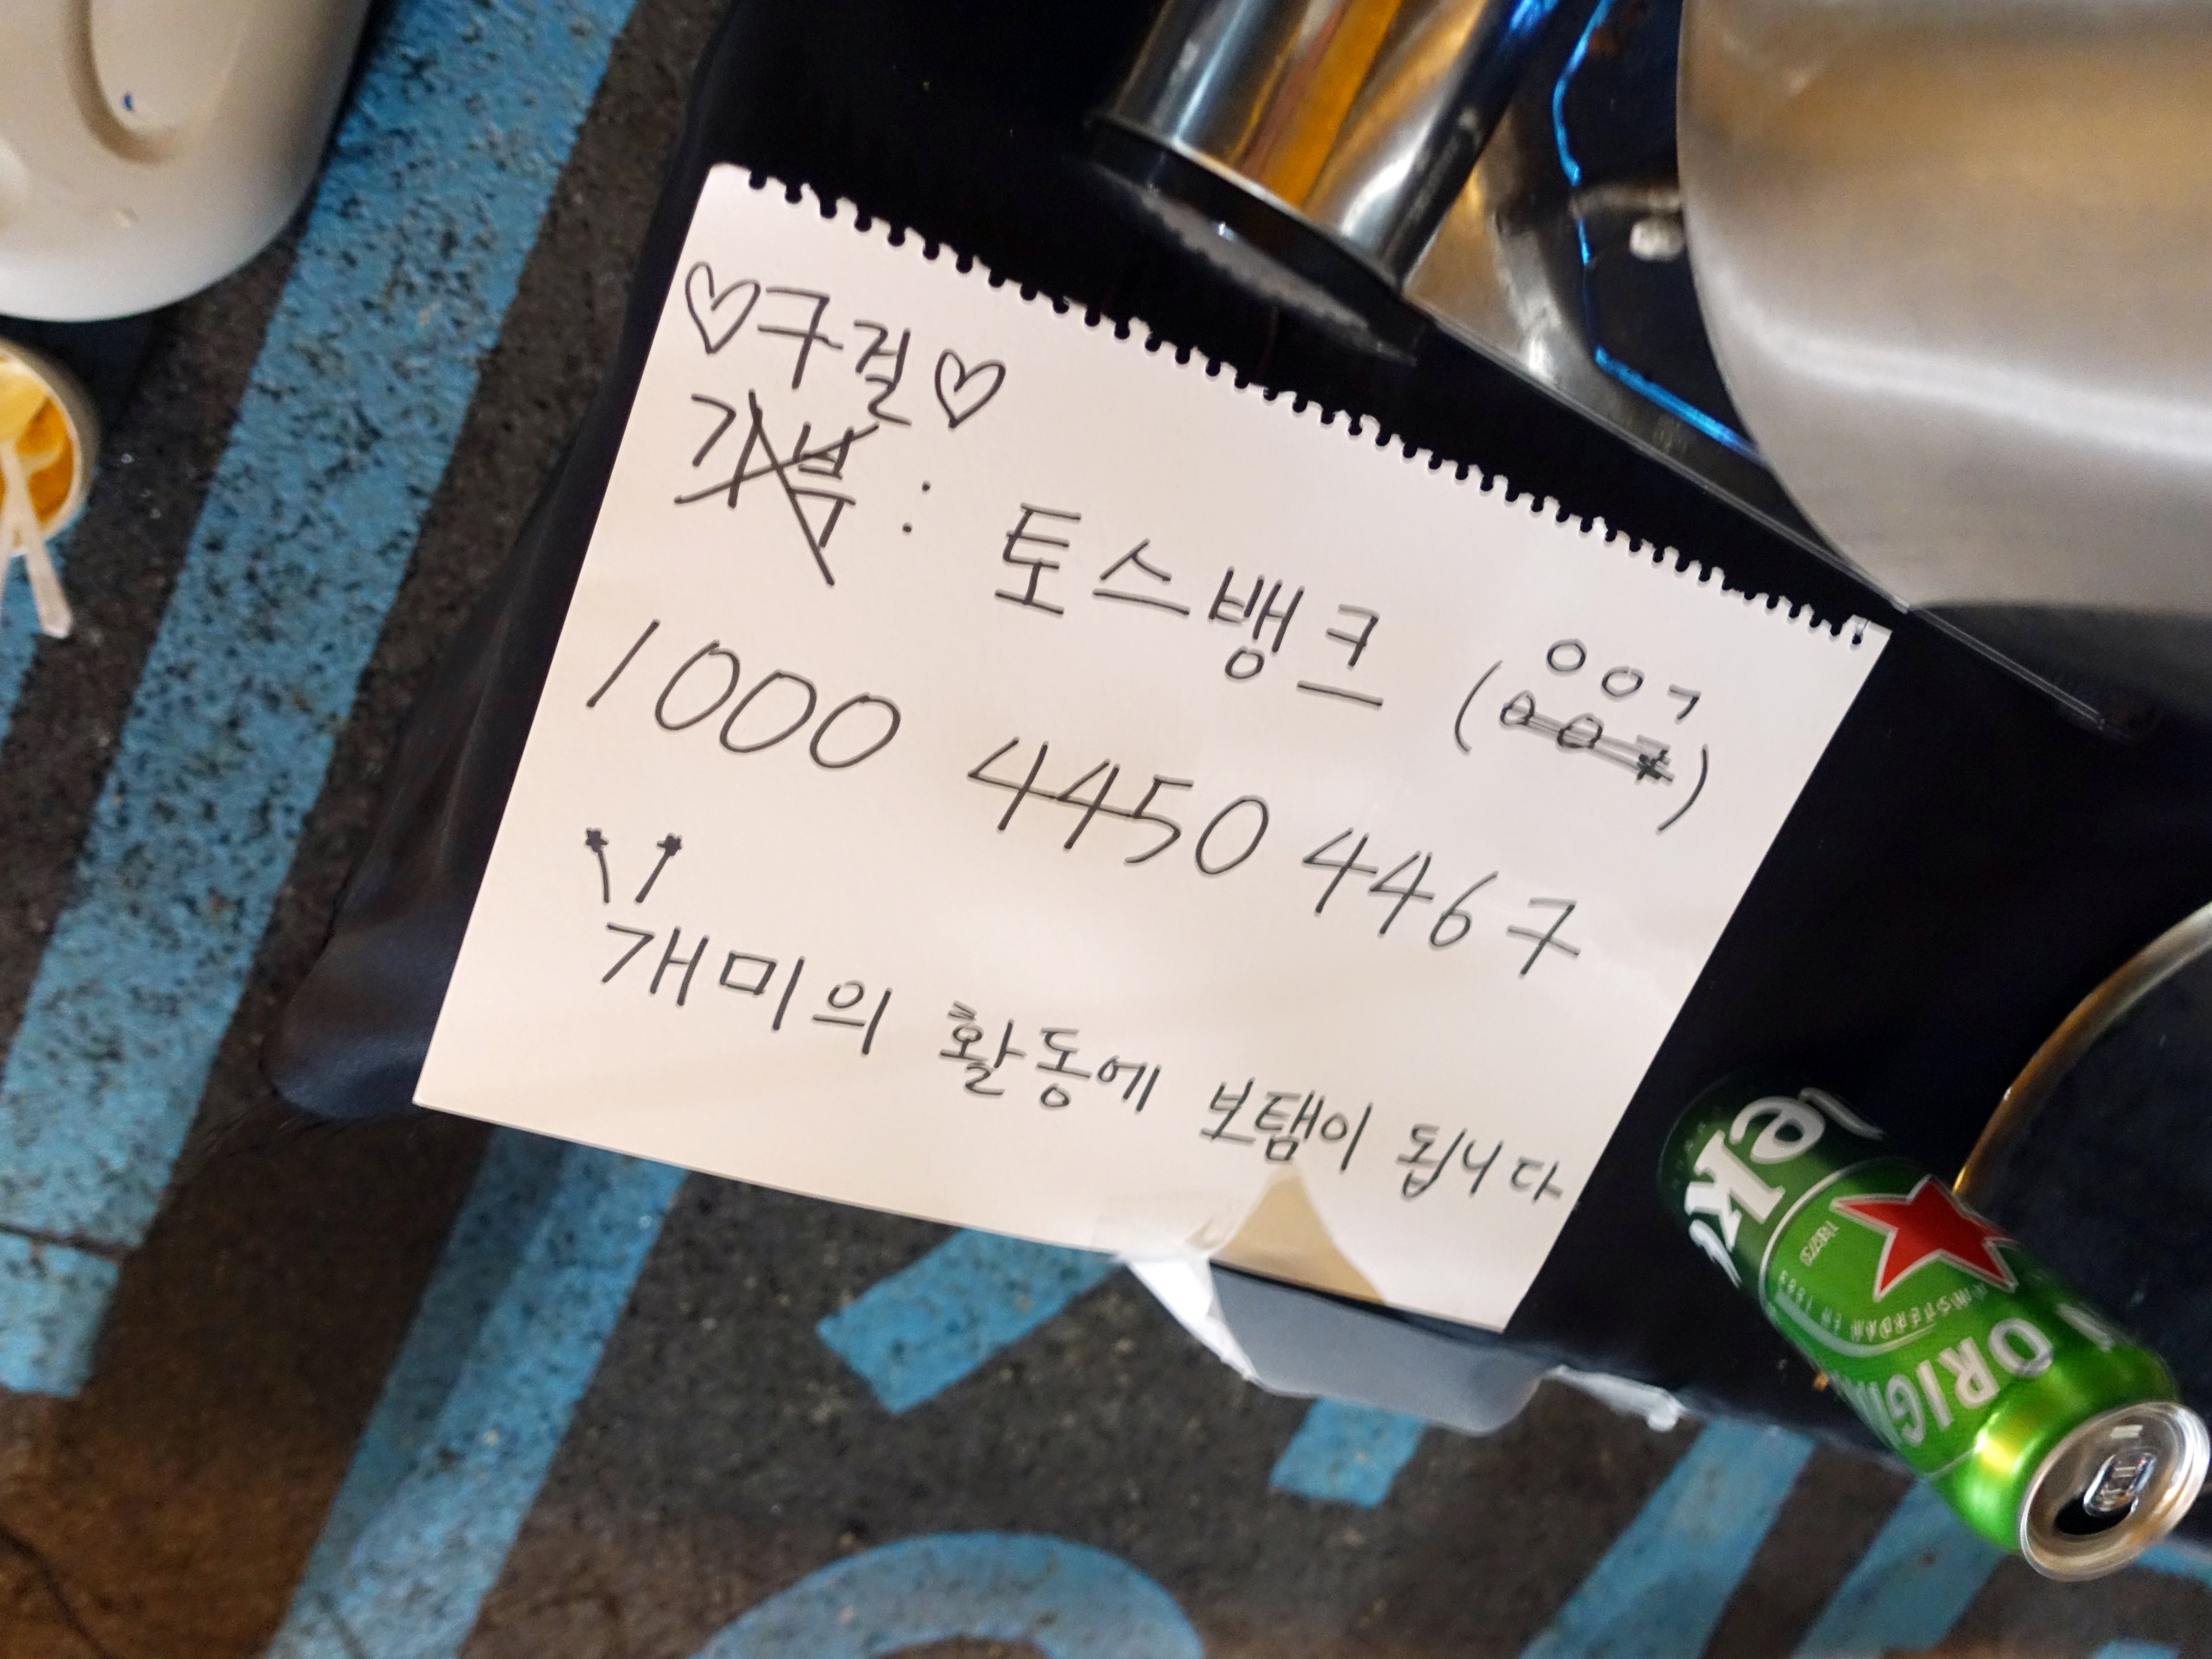 ♡구걸♡
기부 : 토스뱅크 (ㅇㅇㄱ)
1000 4450 4467
개미의 활동에 보탬이 됩니다
ORIGIN
AMSTERDAM